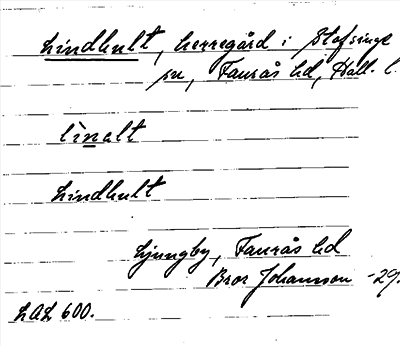 Lindhult, herregård i Stafsinge
sn, Faurås hd, Hall. l.
lìnalt
Lindhult
Ljungby, Faurås hd
Bror Johansson -29.
LAL 600.